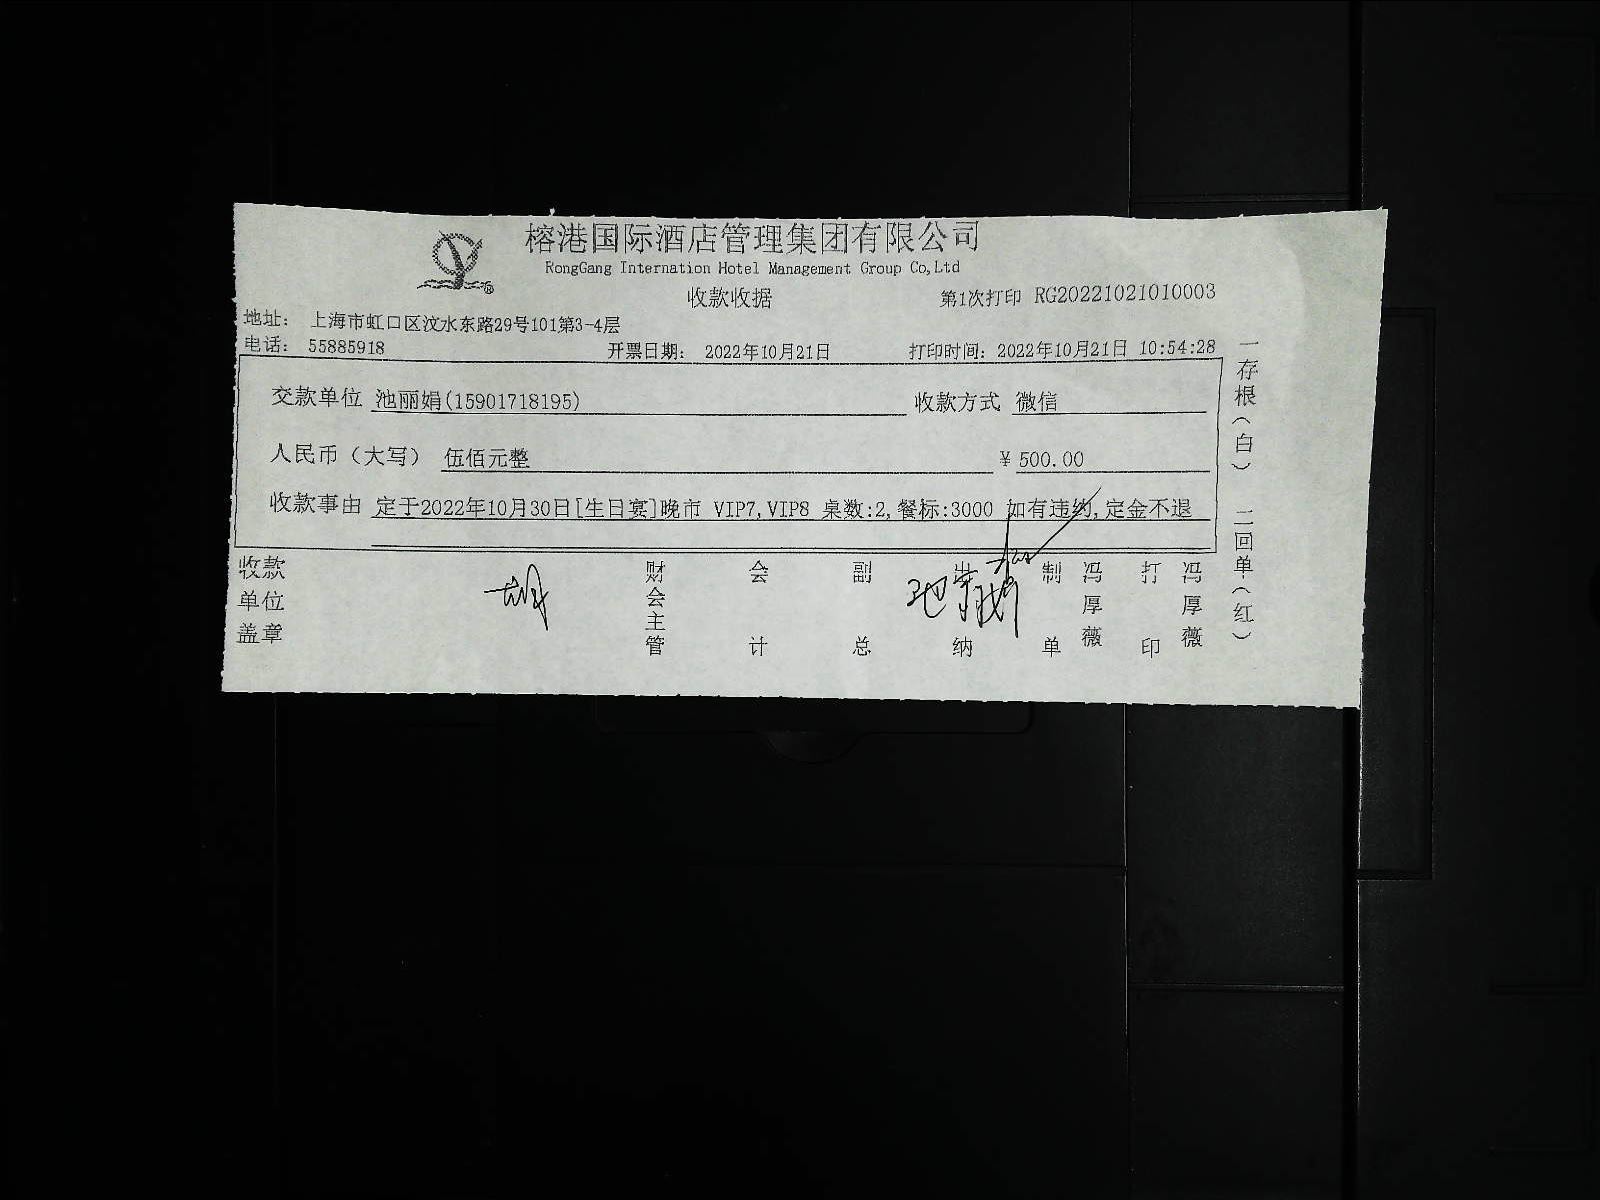 榕港国际酒店管理集团有限公司
RongGang Internation Hotel Management Group Co,Ltd
收款收据
第1次打印 RG20221021010003
地址： 上海市虹口区汶水东路29号101第3-4层
电话： 55885918 开票日期： 2022年10月21日 打印时间：2022年10月21日 10:54:28
交款单位 池丽娟(15901718195) 收款方式 微信
人民币（大写） 伍佰元整 ¥ 500.00
收款事由 定于2022年10月30日[生日宴]晚市 VIP7,VIP8 桌数:2,餐标:3000 如有违约,定金不退
收款单位盖章 财会主管 会计 副总 出纳 制单 冯厚薇 打印 冯厚薇
一存根（白） 二回单（红）